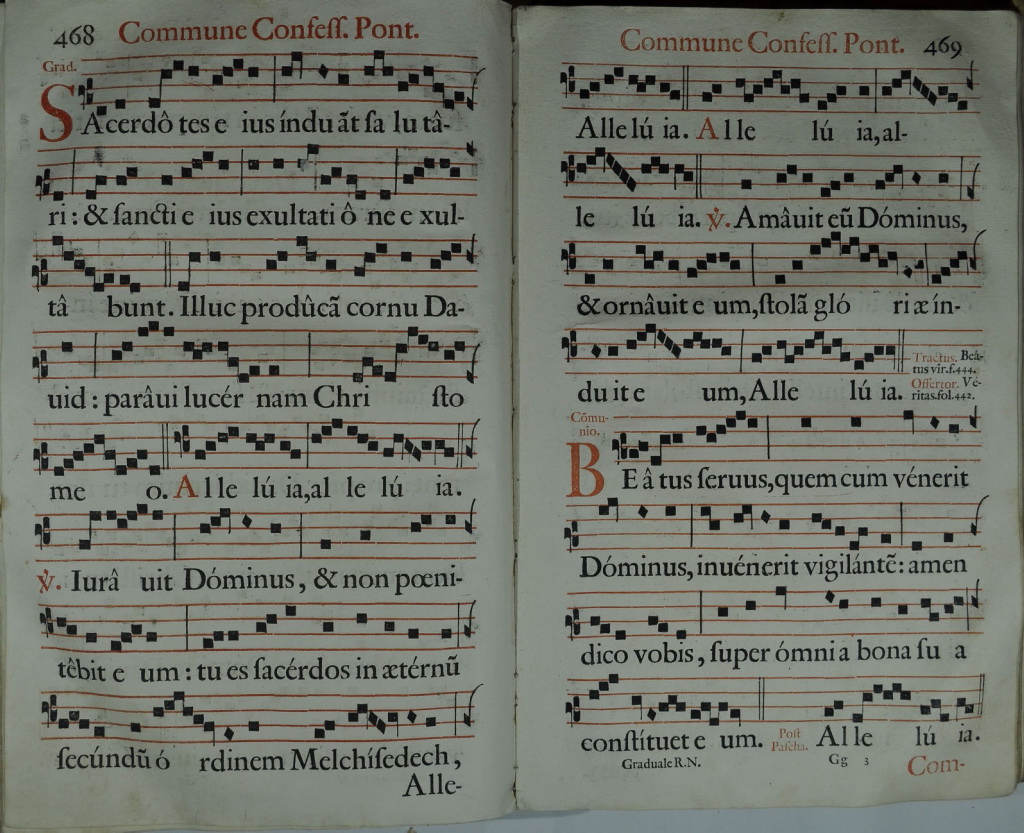 468 Commune Confeſſ. Pont.
Grad.
SAcerdô tes e ius índu ãt ſa lu tâ-
ri : & ſancti e ius exultati ô ne e xul-
tâ bunt. Illuc prodûcã cornu Da-
uid : parâui lucér nam Chri ſto
me o. Alle lú ia, al le lú ia.
℣. Iurâ uit Dóminus, & non pœni-
têbit e um : tu es ſacérdos in ætérnũ
ſecúndũ ó rdinem Melchíſedech,
Alle-
Commune Confeſſ. Pont. 469
Alle lú ia. Alle lú ia, al-
le lú ia. ℣. Amâuit eũ Dóminus,
& ornâuit e um, ſtolã gló ri æ ín-
du it e um, Alle lú ia.
Tractus. Beâ-
tus vir. f. 444.
Offertor. Vé-
ritas. fol. 442.
Cõmu-
nio.
BEâ tus ſeruus, quem cum vénerit
Dóminus, inuénerit vigilántẽ: amen
dico vobis, ſuper ómni a bona ſu a
conſtítuet e um. Poſt Paſcha. Alle lú ia.
Graduale R.N. Gg 3 Com-